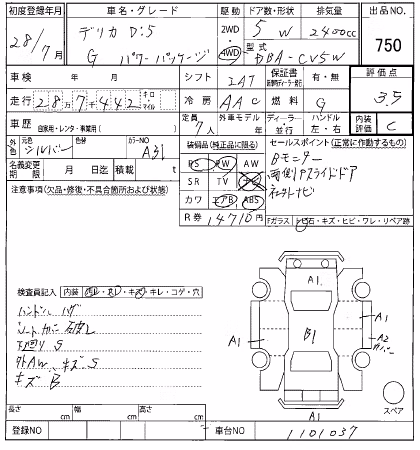 初度登録年月 車名・グレード 駆動 ドア数・形状 排気量 出品NO.
28/7月 デリカD:5 2WD 5 W 2400cc 750
G パワーパッケージ 4WD 型式 DBA-CV5W
車検 年 月 シフト IAT 保証書 有・無 評価点
走行 28万7千442 キロ マイル 冷房 AAC 燃料 G 3.5
車歴 自家用・レンタ・事業用( ) 定員 7人 外車モデル 年 ディーラー・並行 ハンドル 左・右 内装評価 C
外色 元色 シルバー 色替 カラーNO A31
装備品(純正品に限る) セールスポイント(正常に作動するもの)
名義変更期限 月 日迄 積載 t
PS PW AW Bモニター
SR TV ナビ 両側Pスライドドア
カワ エアB ABS
R券 14710円 Fガラス トビ石・キズ・ヒビ・ワレ・リペア跡
注意事項(欠品・修復・不具合箇所および状態)
検査員記入 内装 ヨレ・キレ・コゲ・穴
ハンドル ハゲ
シートカバー 破レ
下廻り S
外AW キズ S
キズ B
A1
A1 B1 A1
A2
カバー
A1
スペア
長さ cm 幅 cm 高さ cm
登録NO 車台NO 1101037